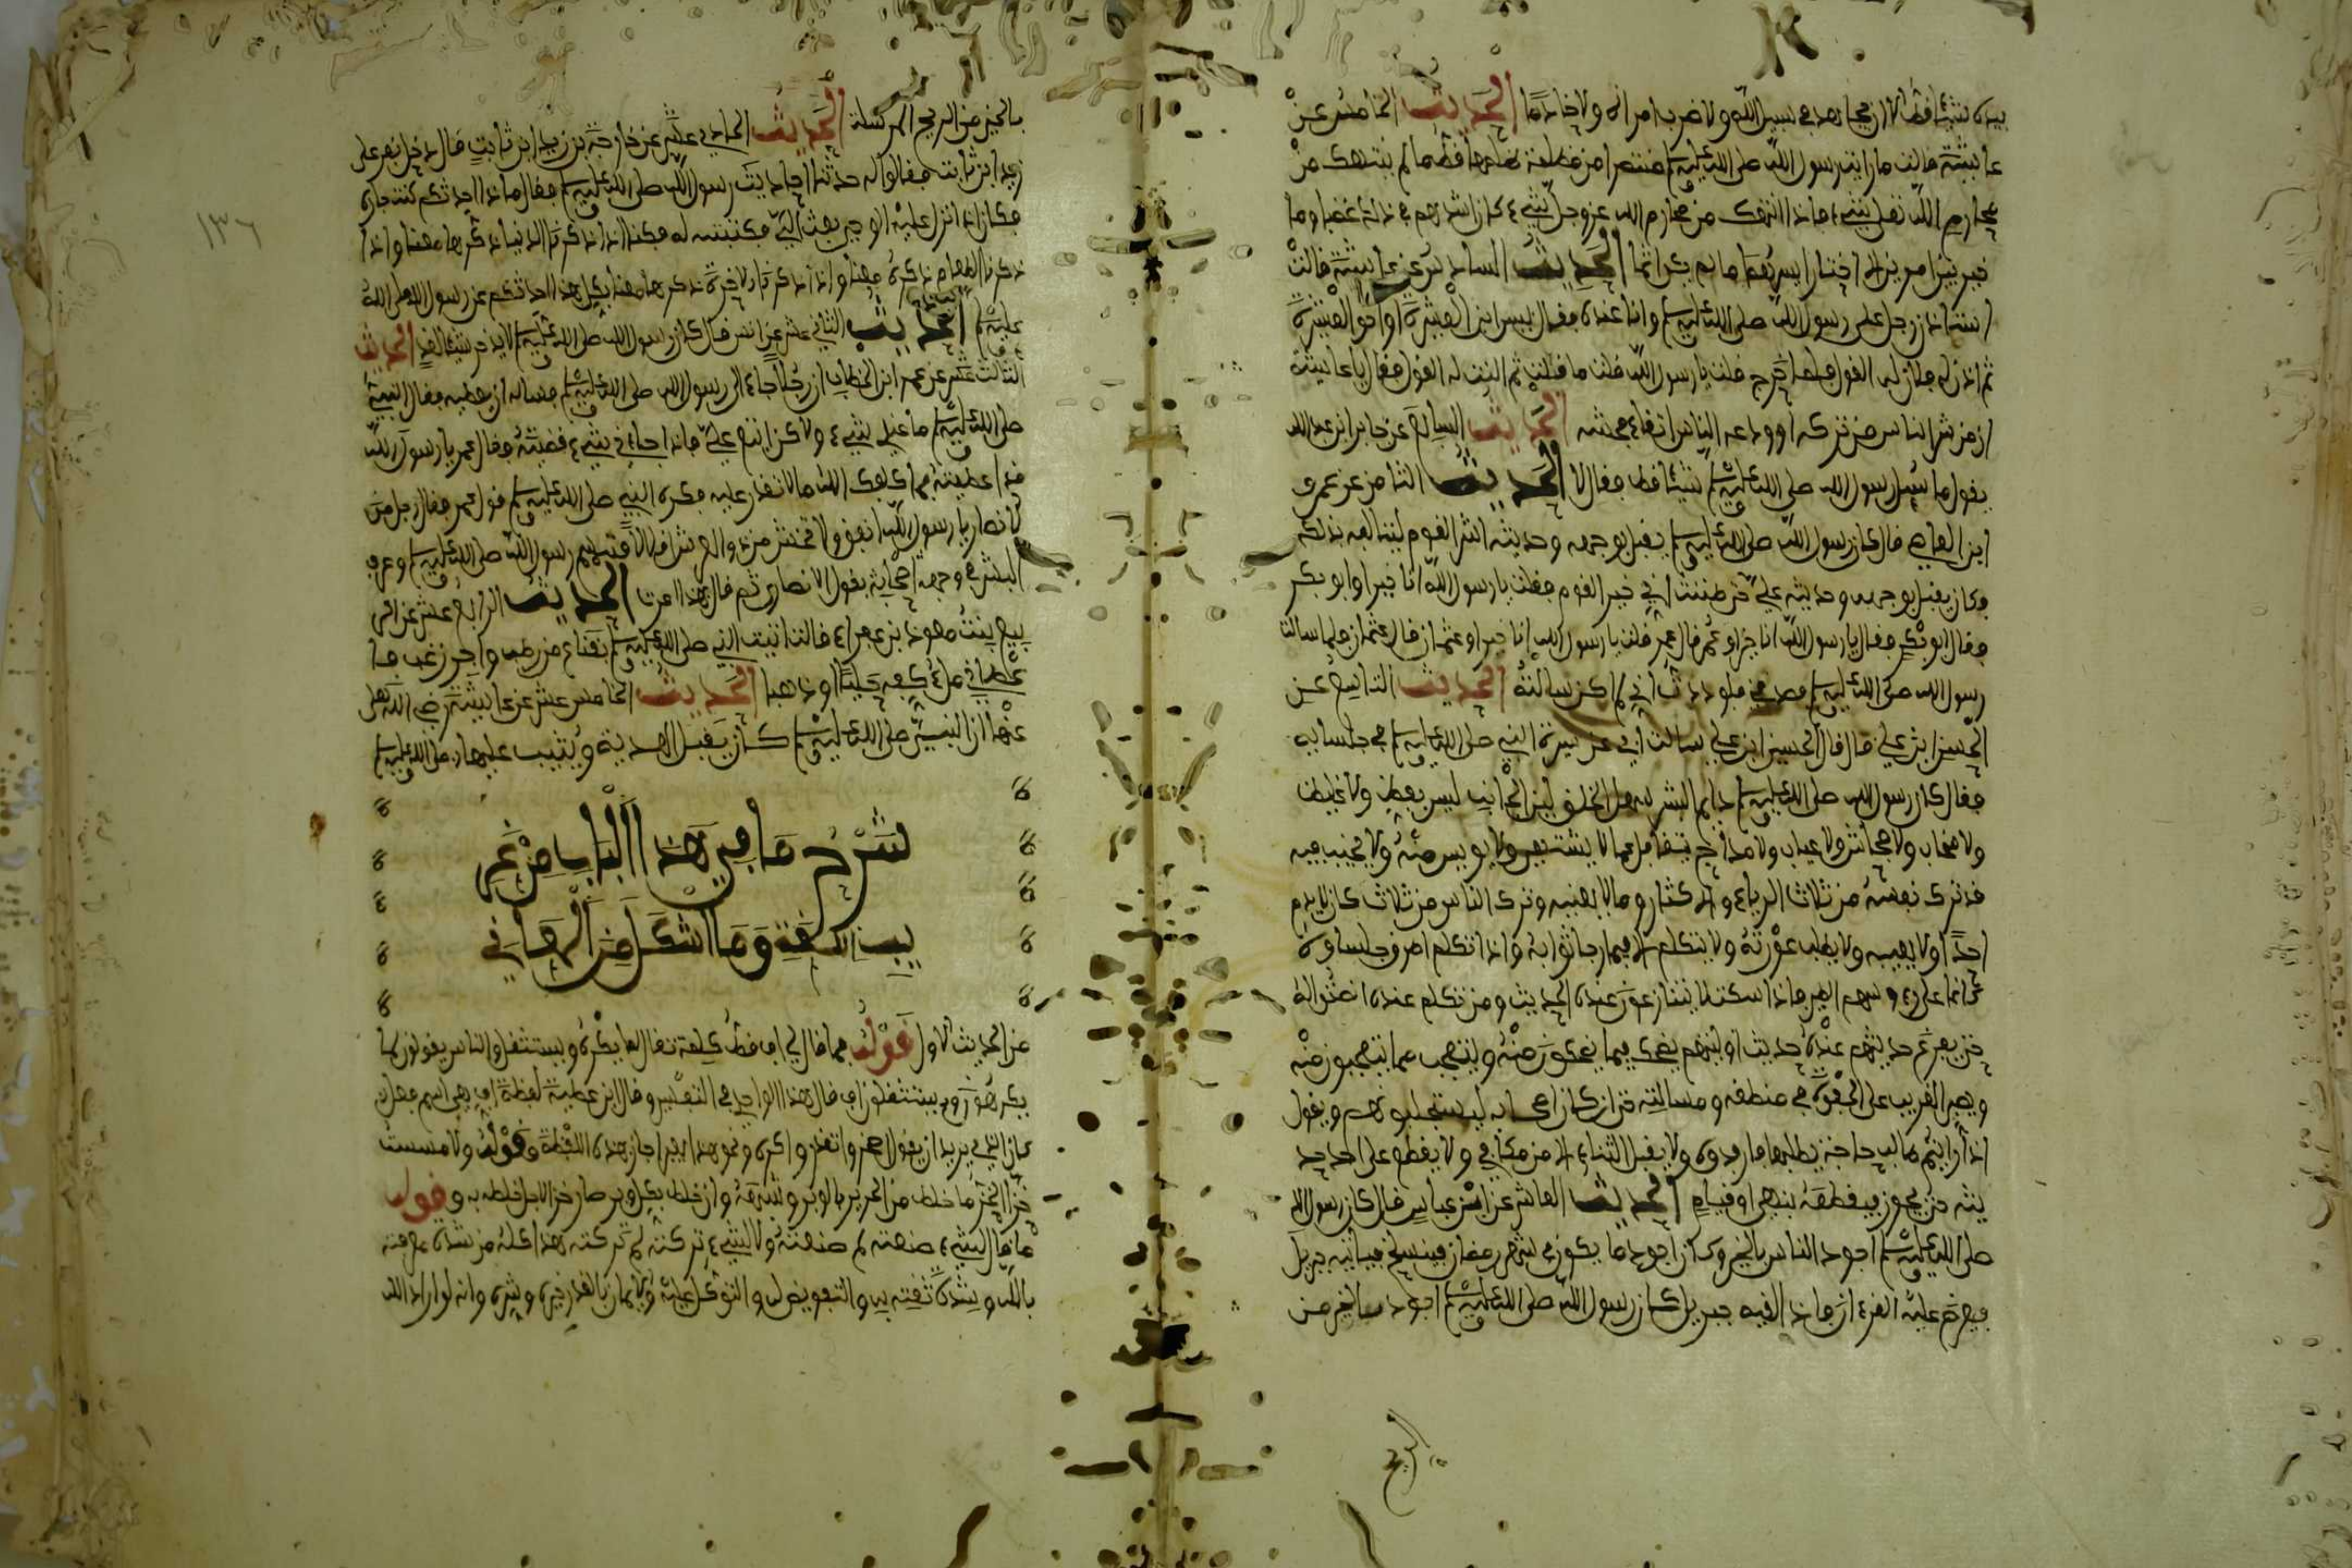 بيده شيئا قط الا ان يجاهد في سبيل الله ولا ضرب امراة ولا خادما الحديث الخامس عن
عائشة قالت ما رايت رسول الله صلى الله عليه وسلم منتصرا من مظلمة ظلمها قط ما لم ينتهك من
محارم الله تعلى شيء فاذا انتهك من محارم الله عز وجل شيء كان اشدهم في ذلك غضبا وما
خير بين امرين الا اختار ايسرهما ما لم يكن اثما الحديث السادس عن عائشة قالت
استاذن رجل على رسول الله صلى الله عليه وسلم وانا عنده فقال بيس ابن العشيرة او اخو العشيرة
ثم اذن له فالان له القول فلما خرج قلت يا رسول الله قلت ما قلت ثم النت له القول فقال يا عائشة
ان من شر الناس من تركه او ودعه الناس اتقاء فحشه الحديث السابع عن جابر ابن عبد الله
يقول ما سئل رسول الله صلى الله عليه وسلم شيئا قط فقال لا الحديث الثامن عن عمرو
ابن العاصي قال كان رسول الله صلى الله عليه وسلم يقبل بوجهه وحديثه اشر القوم يتالفه بذلك
وكان يقبل بوجهه وحديثه علي حتى ظننت اني خير القوم فقلت يا رسول الله انا خير او ابو بكر
فقال ابو بكر فقال يا رسول الله انا خير او عمر قال عمر قلت يا رسول الله انا خير او عثمان قال عثمان فلما سالت
رسول الله صلى الله عليه وسلم فصدقني فلوددت اني لم اكن سالته الحديث التاسع عن
الحسن ابن علي قال قال الحسين ابن علي سالت ابي عن سيرة النبي صلى الله عليه وسلم في جلسائه
فقال كان رسول الله صلى الله عليه وسلم دايم البشر سهل الخلق لين الجانب ليس بفظ ولا غليظ
ولا صخاب ولا فحاش ولا عياب ولا مداح يتغافل عما لا يشتهي ولا يويس منه ولا يخيب فيه
قد ترك نفسه من ثلاث الرياء والاكثار وما لا يعنيه وترك الناس من ثلاث كان لا يذم
احدا ولا يعيبه ولا يطلب عورته ولا يتكلم الا فيما رجا ثوابه واذا تكلم اطرق جلساوه
كانما على رءوسهم الطير فاذا سكت لا يتنازعون عنده الحديث ومن تكلم عنده انصتوا له
حتى يفرغ حديثهم عنده حديث اوليهم يضحك فيما يضحكون منه ويتعجب مما يتعجبون منه
ويصبر الغريب على الجفوة في منطقه ومسالته حتى ان كان اصحابه ليستجلبونهم ويقول
اذا رايتم طالب حاجة يطلبها فارفدوه ولا يقبل الثناء الا من مكافي ولا يقطع على احد حد
يثه حتى يجوز فيقطعه بنهي او قيام الحديث العاشر عن ابن عباس قال كان رسول الله
صلى الله عليه وسلم اجود الناس بالخير وكان اجود ما يكون في شهر رمضان فينسلخ فياتيه جبريل
فيعرض عليه القرءان فاذا لقيه جبريل كان رسول الله صلى الله عليه وسلم اجود بالخير من
الريح
١٣٦
بالخير من الريح المرسلة الحديث الحادي عشر عن خارجة بن زيد ابن ثابت قال دخل نفر على
زيد ابن ثابت فقالوا له حدثنا احاديث رسول الله صلى الله عليه وسلم فقال ماذا احدثكم كنت جاره
فكان اذا نزل عليه الوحي بعث الي فكتبته له فكنا اذا ذكرنا الدنيا ذكرها معنا واذا
ذكرنا الطعام ذكره معنا واذا ذكرنا الاخرة ذكرها معنا فكل هذا احدثكم عن رسول الله صلى الله
عليه وسلم الحديث الثاني عشر عن انس قال كان رسول الله صلى الله عليه وسلم لا يدخر شيئا لغد الحديث
الثالث عشر عن عمر ابن الخطاب ان رجلا جاء الى رسول الله صلى الله عليه وسلم فساله ان يعطيه فقال النبيء
صلى الله عليه وسلم ما عندي شيء ولاكن ابتع علي فاذا جاءني شيء قضيته فقال عمر يا رسول الله
قد اعطيته فما كلفك الله ما لا تقدر عليه فكره النبي صلى الله عليه وسلم قول عمر فقال رجل من
الانصار يا رسول الله انفق ولا تخش من ذي العرش اقلالا فتبسم رسول الله صلى الله عليه وسلم وعرف
البشر في وجهه بقول الانصاري ثم قال بهذا امرت الحديث الرابع عشر عن الر
بيع بنت معوذ بن عفراء قالت اتيت النبي صلى الله عليه وسلم بقناع من رطب واجر زغب فا
عطاني ملء كفه حليا او ذهبا الحديث الخامس عشر عن عائشة رضي الله
عنها ان النبيء صلى الله عليه وسلم كان يقبل الهدية ويثيب عليها صلى الله عليه وسلم
شرح ما في هذا الباب من غر
يب اللغة وما اشكل من المعاني
من الحديث الاول قوله فما قال لي اف قط كلمة تقال لما يكره ويستثقل والناس يقولون لما
يكرهون ويستثقلون اف قال هذا الواحدي في التفسير وقال ابن عطية لفظة اف هي اسم فعل
كان الذي يريد ان يقول اضجر او اتقذر او اكره ونحو هذا يعبر ايجازا بهذه اللفظة وقوله ولا مسست
خزا الخز ما خلط من الحرير بالوبر وشبهه وان خلط بكل وبر صار خزا لاجل خلطه به وقوله
ما قال لشيء صنعته لم صنعته ولا لشيء تركته لم تركته هذا كله من شدة معرفته
بالله وشدة ثقته به والتفويض له والتوكل عليه والايمان بالقدر خيره وشره وانه لو اراد الله